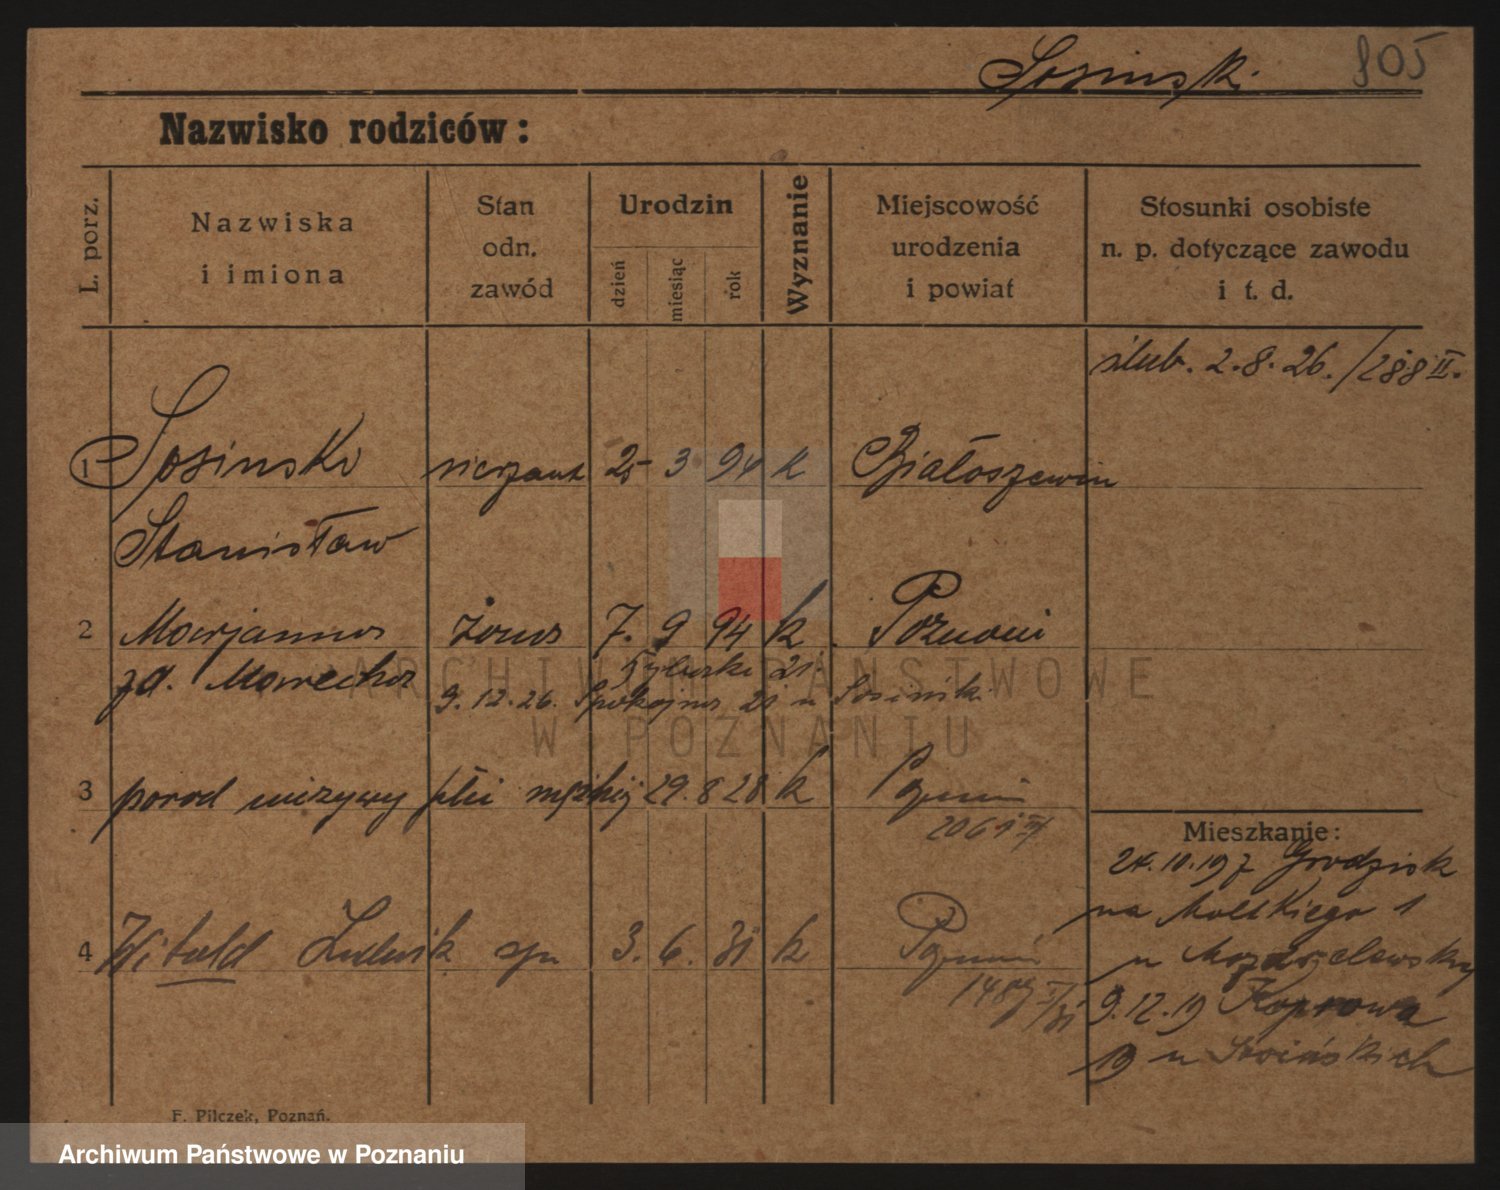 Sosinski. 805
Nazwisko rodziców:
L. porz.
Nazwiska
i imiona
Stan
odn.
zawód
Urodzin
dzień
miesiąc
rok
Wyznanie
Miejscowość
urodzenia
i powiat
Stosunki osobiste
n. p. dotyczące zawodu
i t. d.
ślub. 2.8.26./288 II.
1 Sosinski sierzant 25 3 94 k Białoszewin
Stanisław
2 Marjanna żona 7. 9 94 k. Poznań
zd. Marecka 21.
9.12.26. Spokojna 21 u Sosinsk.
3 porod nieżywy płci męzkiej 29. 8 28 k Poznań
2061
Mieszkanie:
24.10.19 Grodzisk
na Moltkiego 1
4 Witold Ludwik syn 3. 6. 31 k Poznań
u
1489 I/31
9.12.19 Koprowa
19 u Sosińskich
F. Pilczek, Poznań.
ARCHIWUM PAŃSTWOWE
W POZNANIU
Archiwum Państwowe w Poznaniu